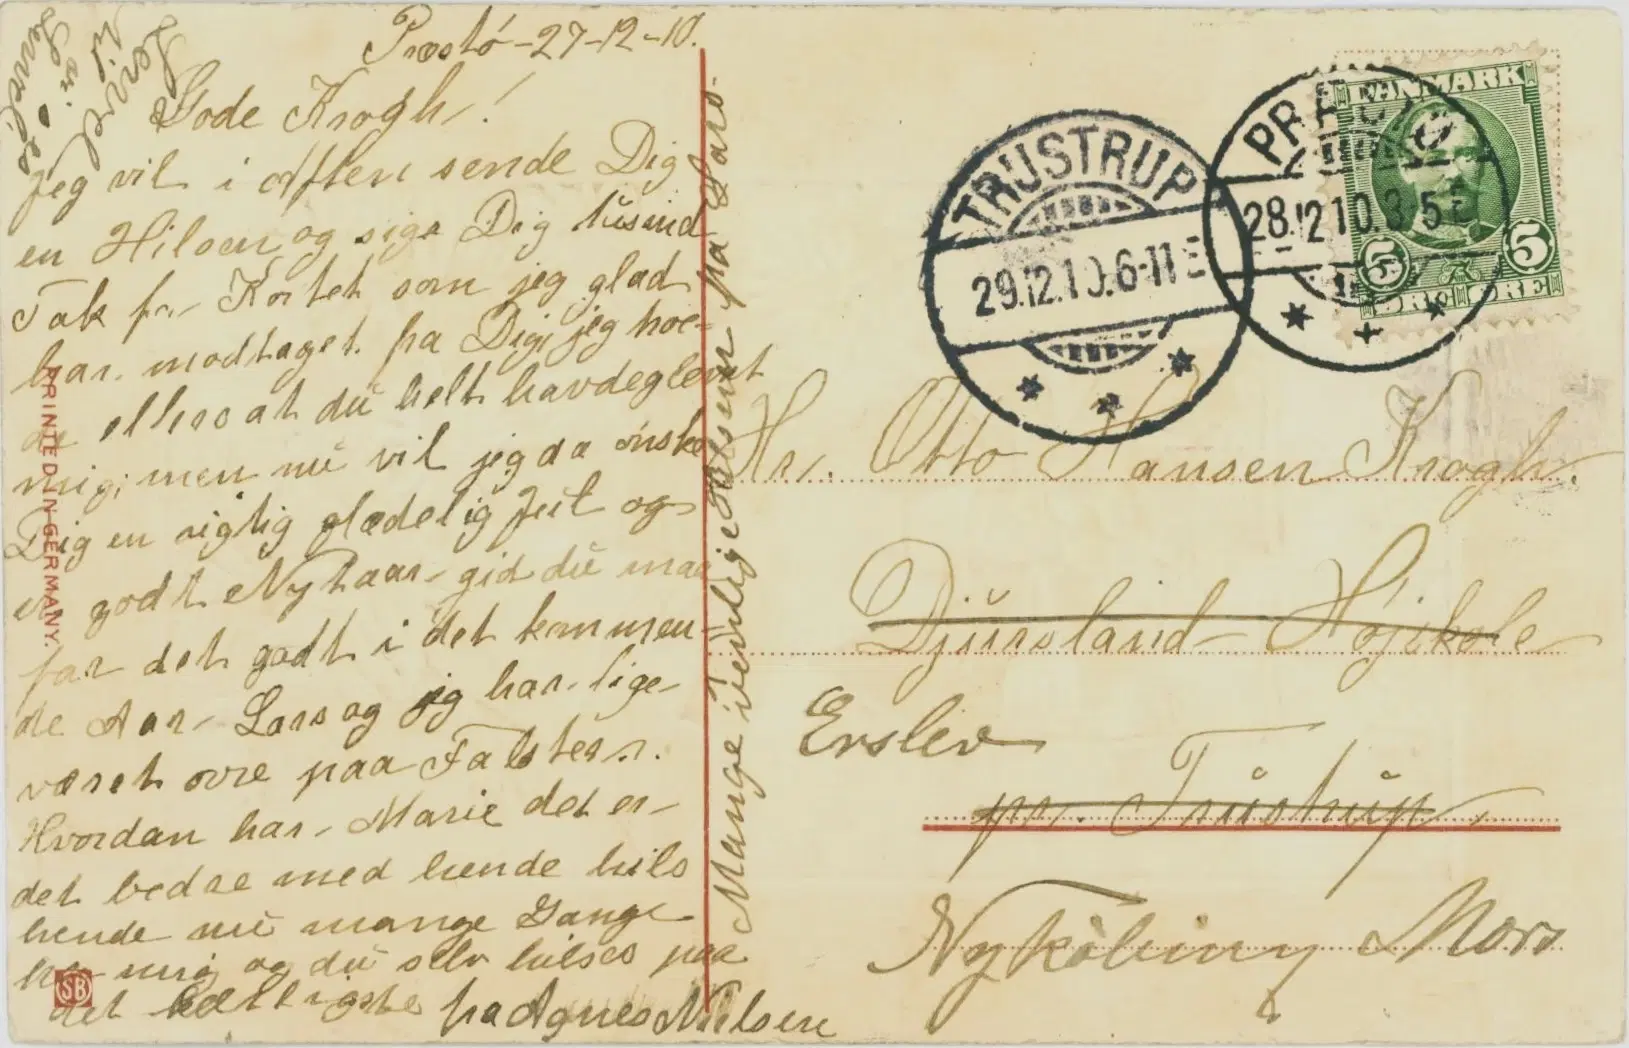 Præstó-27-12-10.
Gode Krogh!
Jeg vil i Aften sende Dig
en Hilsen og sige Dig tusind
Tak for Kortet som jeg glad
har modtaget fra Dig, jeg
ellers at du helt havde glemt
mig, men nu vil jeg da ónske
Dig en rigtig glædelig Fest og
et godt Nytaar gid du maa
faa det godt i det kommen-
de Aar Lars og jeg har lige
været ovre paa Falster.
Hvordan har Marie det er
det bedre med hende hils
hende nu mange Gange
fra mig og du selv hilses paa
det kælligste fra Agnes Nielsen
Mange venlige Hilsen fra Lars.
Skrivel
PRINTED IN GERMANY.
SB
DANMARK
5 5
ØRE ØRE
PRÆSTØ
28.12.10.3-5 E
TRUSTRUP
29.12.10.6-11 E
Hr. Otto Hansen Krogh.
Djursland Hójskole
Erslev
pr. Trustrup
Nykóbing Mors